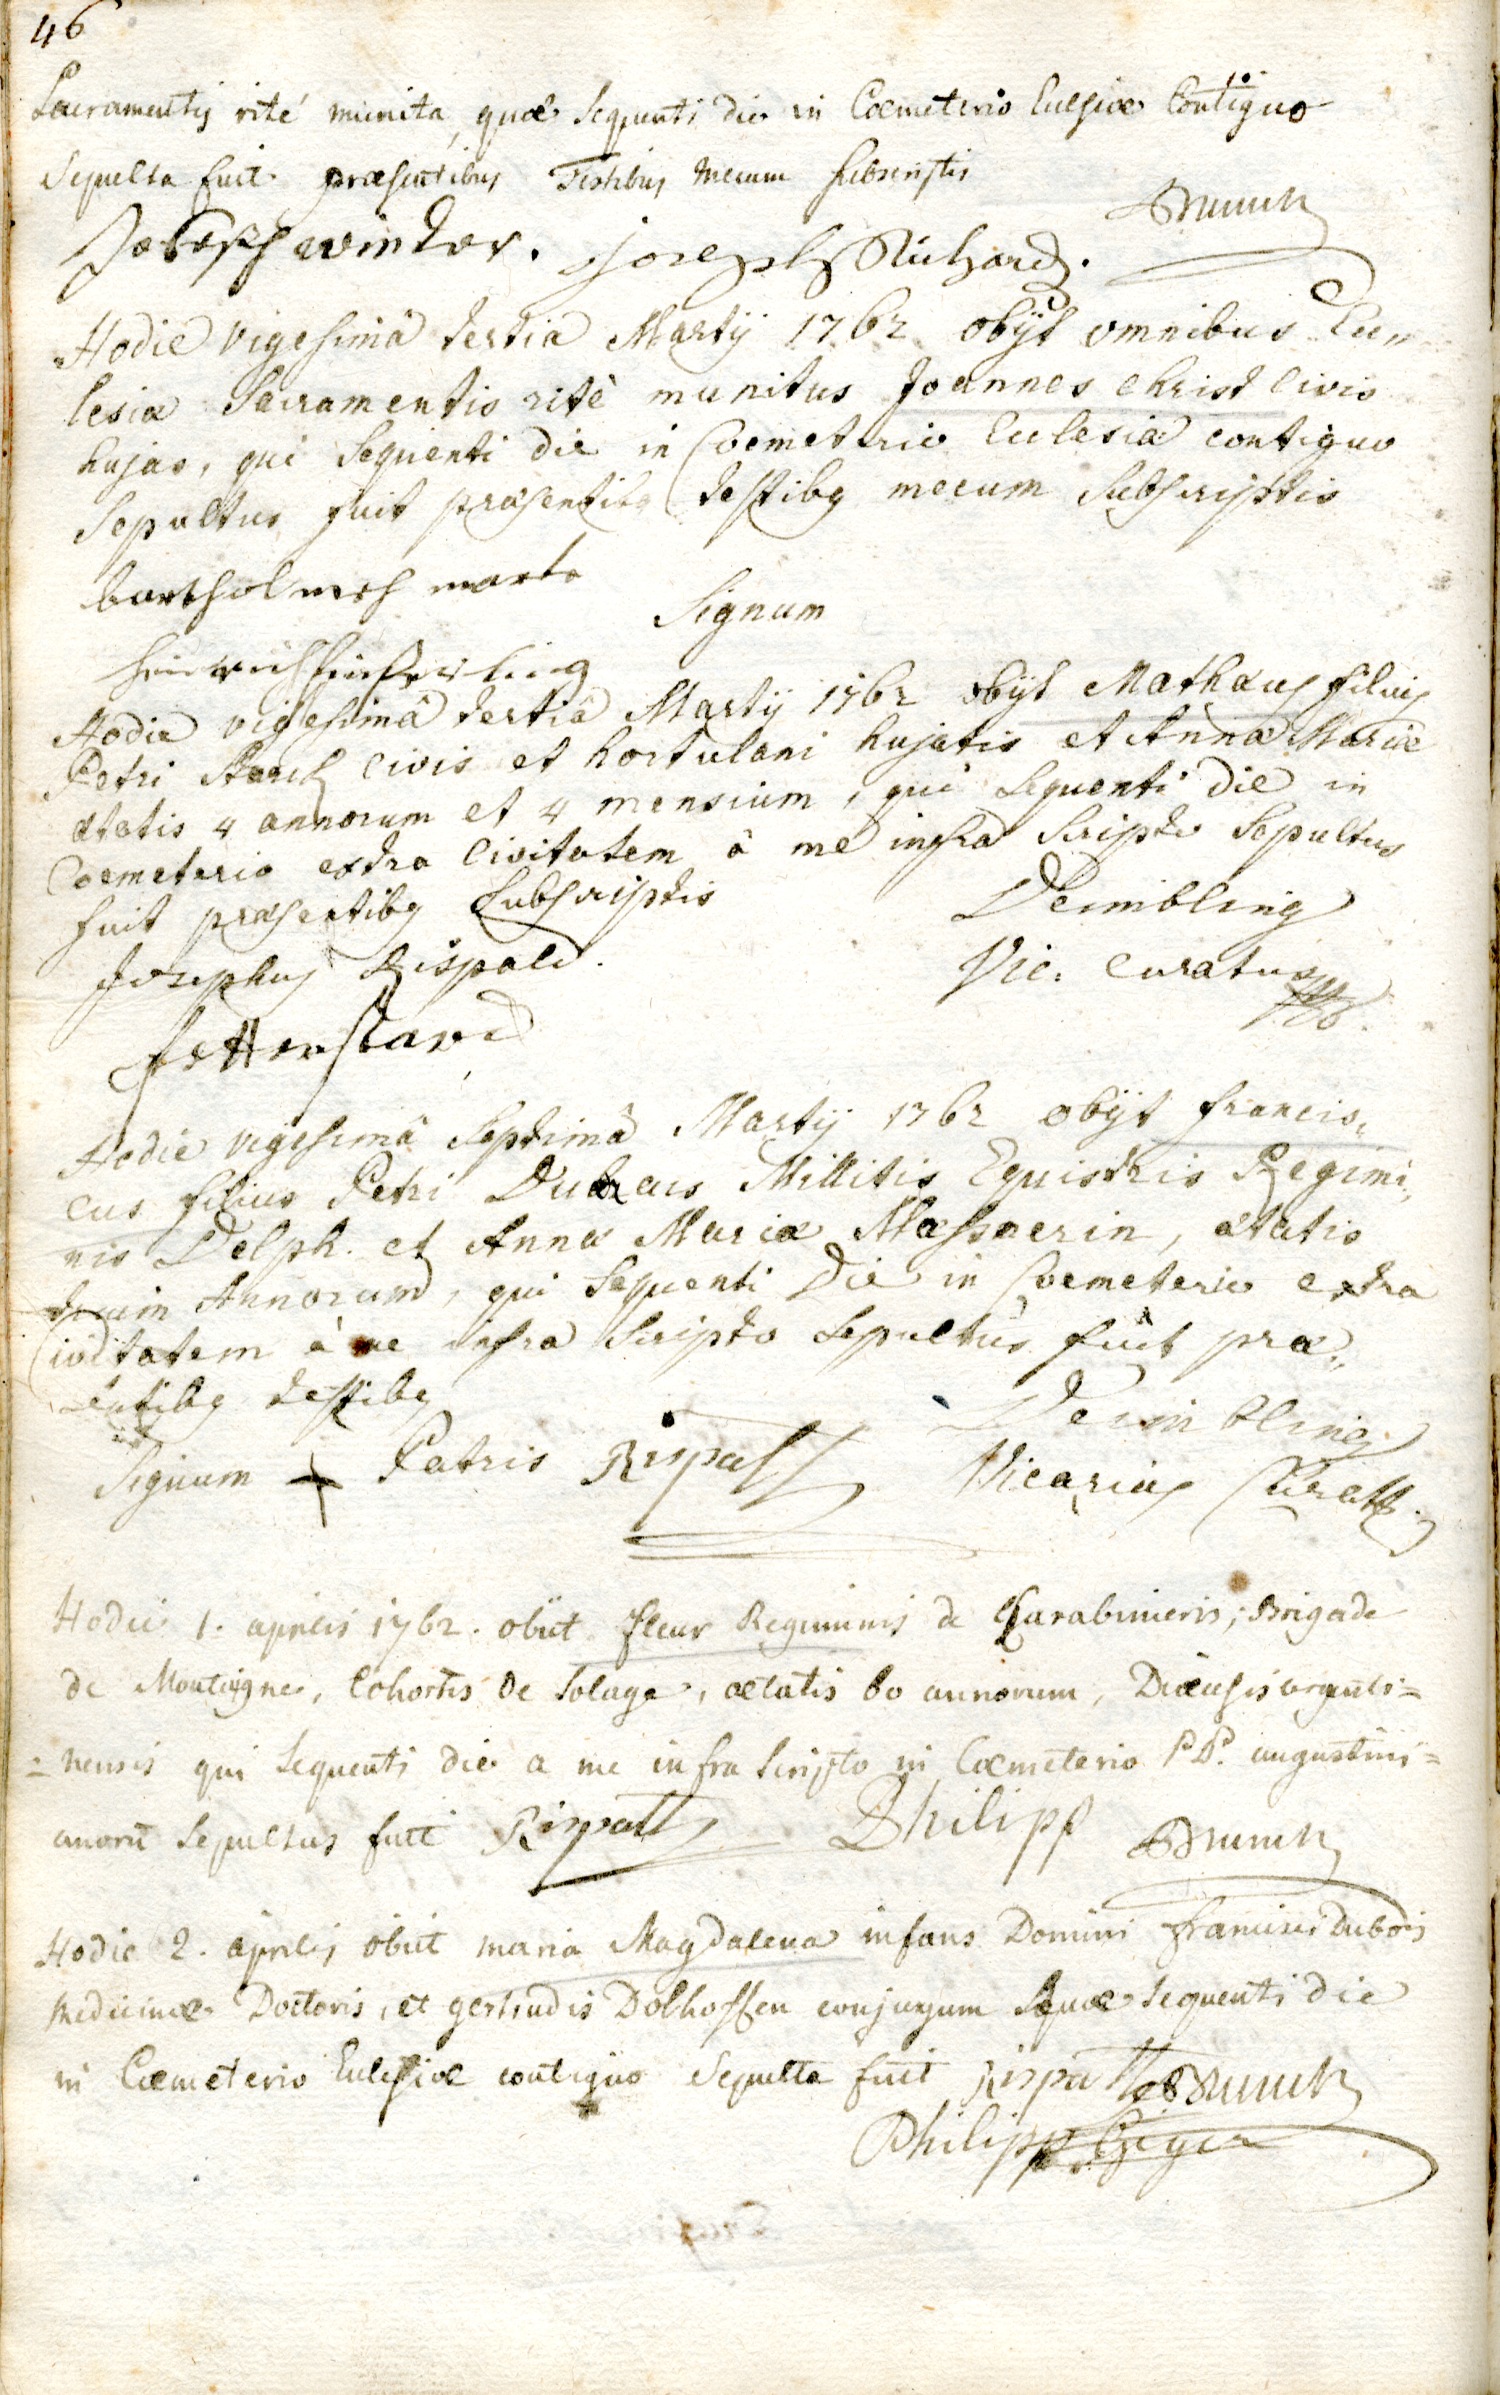 46
Sacramentis rité munita, quæ sequenti die in Cœmeterio Eclesiæ Contiguo
Sepulta fuit præsentibus Testibus mecum subscriptis
Joseph winter. Joseph Richard.
Hodie vigesimâ tertia Martÿ 1762 obÿt omnibus Ec„
lesiæ Sacramentis ritè munitus Joannes Christ Civis
hujas, qui Sequenti die in Coemeterio Eclesiæ contiguo
Sepultus fuit præsentibꝫ testibꝫ mecum Subscriptis
Signum
Hodie vigesimâ tertiâ Martÿ 1762 obÿt Mathæus filius
Petri civis et hortulani hujatis et Anna Mariæ
ætatis 4 annorum et 4 mensium, qui Sequenti die in
Coemeterio extra Civitatem à me infra Scripto Sepultus
fuit præsentibꝫ Subscriptis
Deimbling
Josephus Rispald.
Vic: Curatus
Hodie vigesimâ Septimâ Martÿ 1762 obÿt francis„
cus filius Petri Millitis Equistris Regimi„
nis Delph. et Anna Mariæ ætatis
Annorum, qui Sequenti Die in Coemeterio extra
Civitatem à me infra Scripto Sepultus fuit præ„
sentibꝫ testibꝫ
Deimbling
Signum + Patris Rispall
Vicarius Curatꝫ.
Hodie 1. aprilis 1762. obiit fleur Regiminis de Carabinieris, Brigade
de Montaigne, Cohortis de Solage, ætatis 60 annorum, Diœcesis argenti=
=nensis qui sequenti die a me infra scripto in Cœmeterio P.P. augustini=
anorū sepultus fuit Rispall Philipp
Hodie 2. aprilis obiit maria Magdalena infans Domini francisci Dubois
Medicinæ Doctoris, et gertrudis Dolhoffen conjugum quæ sequenti die
in Cœmeterio Eclesiæ contiguo Sepulta fuit Rispall
Philipp Geger